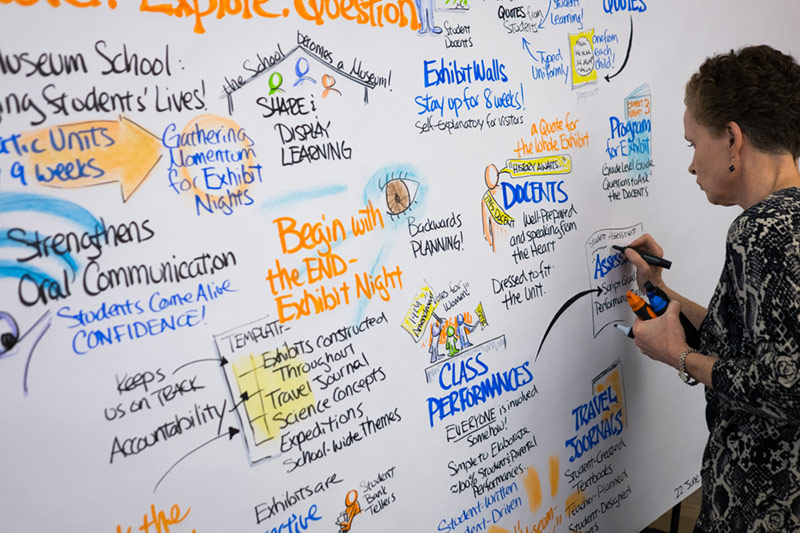 Explore. Question
Museum School:
ging Students' Lives!
the School becomes a Museum!
SHAPE &
DISPLAY
LEARNING
atic Units
9 weeks
Gathering
Momentum
for Exhibit
Nights
Strengthens
Oral Communication
Students Come Alive
CONFIDENCE!
Begin with
the END-
Exhibit Night
Backwards
PLANNING!
Student
Docents
QUOTES from
Students
Student
Learning!
QUOTES
Typed
Uniformly!
one from
each
child!
Exhibit Walls
Stay up for 8 weeks!
Self-Explanatory for visitors
a Quote for
the Whole Exhibit
"HISTORY AWAITS..."
DOCENTS
Well-Prepared
and speaking
from the
Heart
Dressed to fit
the Unit.
Program
for Exhibit
Grade Level Guide
Questions to Ask
the Docents
Student Assessment
Assess
Performance
TEMPLATE-
Exhibits Constructed
Throughout
Travel Journal
Science concepts
Expeditions
School-Wide Themes
Keeps
us on TRACK
Accountability
for
Women"
CLASS
PERFORMANCES
EVERYONE is involved
Somehow!
Simple to Elaborate
100% Students & Parental
Performances.
Student-Written
Student-Driven
Museum
TRAVEL
JOURNALS
Student-Created
Textbooks
Teacher-Planned
Student-Designed
22 June
the
Exhibits are
Student
Bank
Tellers